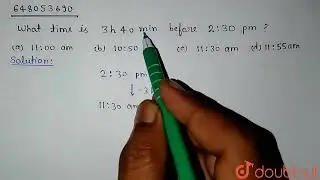 648053690
What time is 3h 40 min before 2:30 pm ?
(a) 11:00 am (b) 10:50 (c) 11:30 am (d) 11:55am
Solution:
2:30 pm
↓ -3
11:30 am
doubtnut